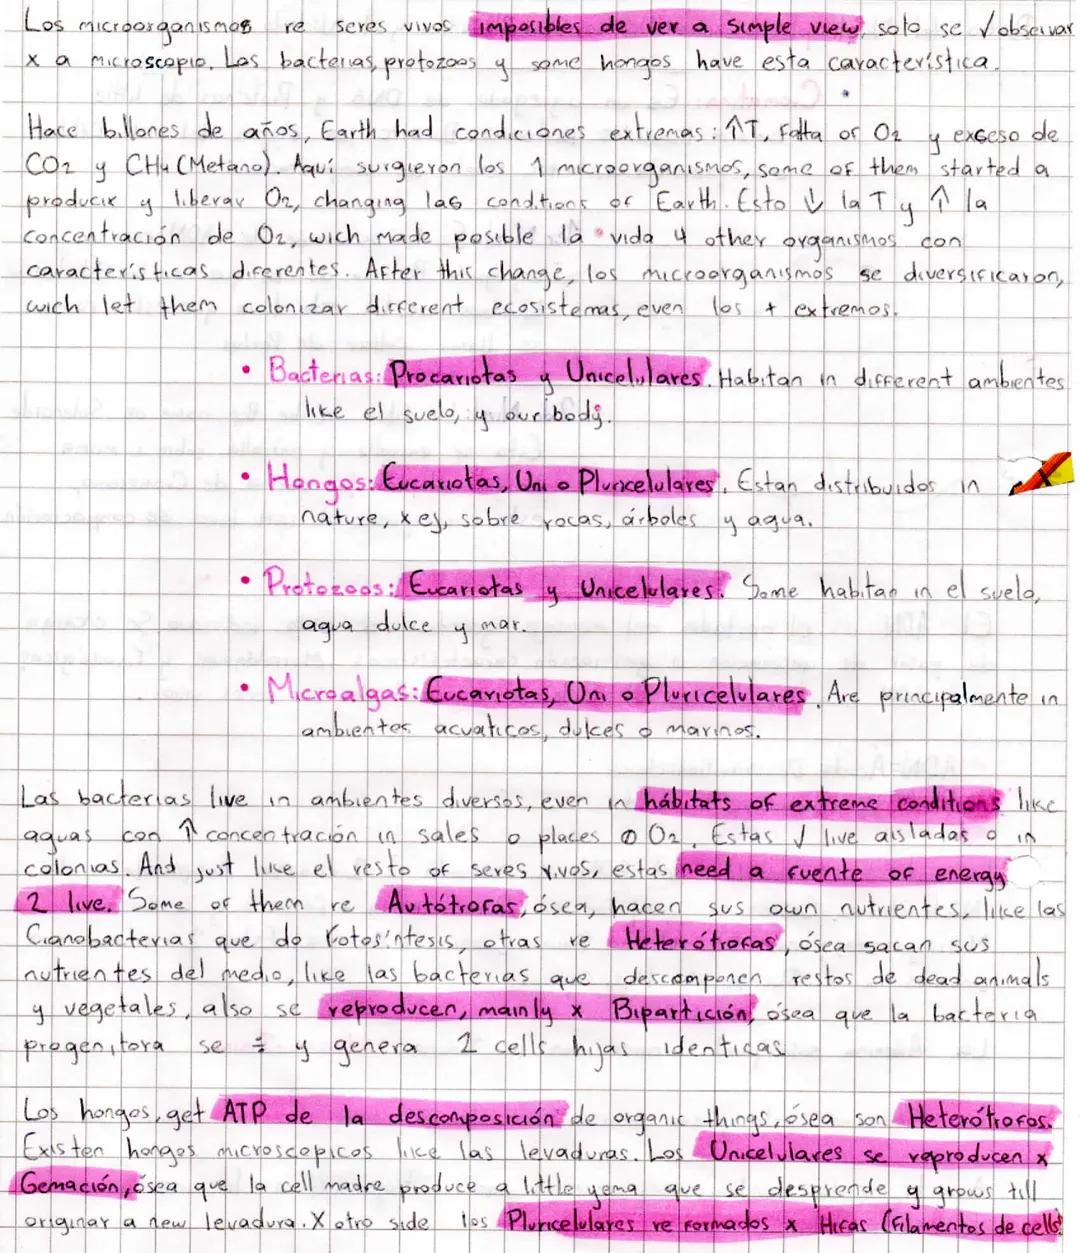 Los microorganismos re seres vivos imposibles de ver a simple view, solo se √ observar
x a microscopio. Las bacterias, protozoos y some hongos have esta característica.
Hace billones de años, Earth had condiciones extremas: ↑T, Falta of O2 y exceso de
CO2 y CH4 (Metano). Aquí surgieron los 1 microorganismos, some of them started a
producir y liberar O2, changing las conditions of Earth. Esto ↓ la T y ↑ la
concentración de O2, wich made posible la vida 4 other organismos con
características diferentes. After this change, los microorganismos se diversificaron,
wich let them colonizar different ecosistemas, even los + extremos.
• Bacterias: Procariotas y Unicelulares. Habitan in different ambientes
like el suelo, y our body.
• Hongos: Eucariotas, Uni o Pluricelulares. Estan distribuidos in
nature, x ej, sobre rocas, árboles y agua.
• Protozoos: Eucariotas y Unicelulares. Some habitan in el suelo,
agua dulce y mar.
• Microalgas: Eucariotas, Uni o Pluricelulares. Are principalmente in
ambientes acuaticos, dulces o marinos.
Las bacterias live in ambientes diversos, even in hábitats of extreme conditions like
aguas con ↑ concentración in sales o places 0 O2. Estas √ live aisladas o in
colonias. And just like el resto of seres vivos, estas need a fuente of energy
2 live. Some of them re Autótrofas, ósea, hacen sus own nutrientes, like las
Cianobacterias que do Fotosíntesis, otras re Heterótrofas, ósea sacan sus
nutrientes del medio, like las bacterias que descomponen restos de dead animals
y vegetales, also se reproducen, mainly x Bipartición, ósea que la bacteria
progenitora se ÷ y genera 2 cells hijas identicas
Los hongos, get ATP de la descomposición de organic things, ósea son Heterótrofos.
Existen hongos microscopicos like las levaduras. Los Unicelulares se reproducen x
Gemación, ósea que la cell madre produce a little yema que se desprende y grows till
originar a new levadura. X otro side los Pluricelulares re formados x Hifas (Filamentos de cells)